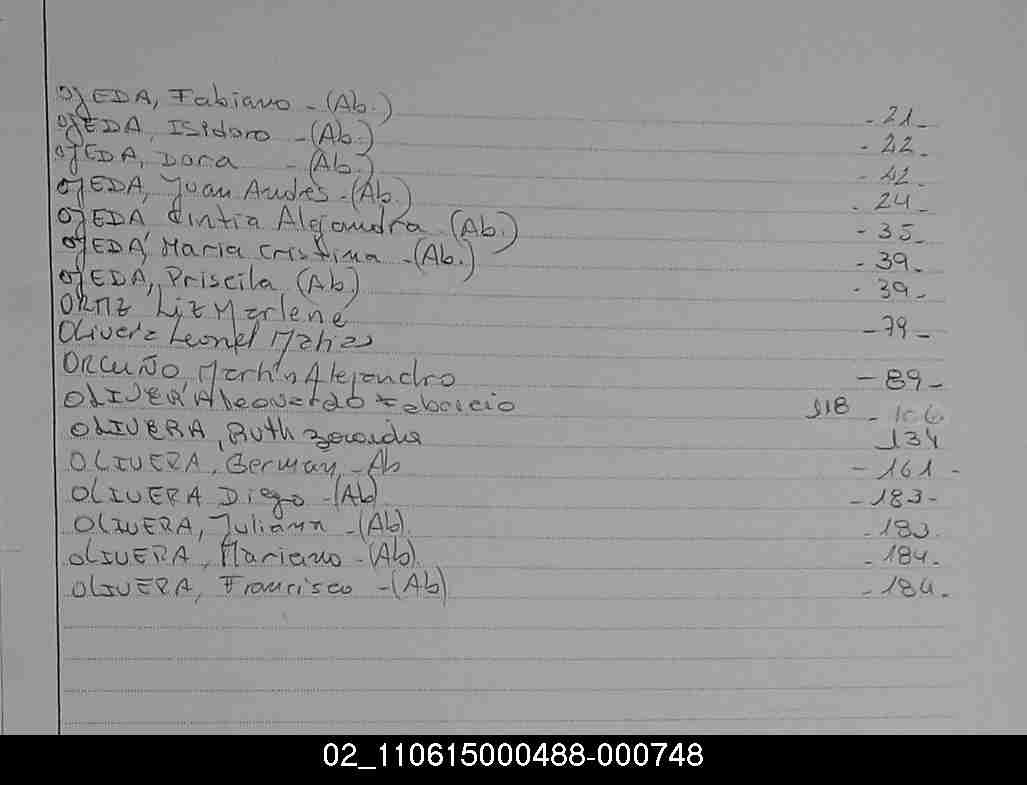 OJEDA, Fabiano - (Ab.) - 21 -
OJEDA, Isidoro - (Ab.) - 22 -
OJEDA, Dora - (Ab.) - 22 -
OJEDA, Juan Andres - (Ab.) - 24 -
OJEDA Cintia Alejandra (Ab.) - 35 -
OJEDA, Maria Cristina - (Ab.) - 39 -
OJEDA, Priscila (Ab.) - 39 -
ORTIZ Liz Marlene
Olivera Leonel Matias - 79 -
ORCUÑO Martin Alejandro - 89 -
OLIVERA Leonardo Fabricio 118 - 106
OLIVERA, Ruth 134
OLIVERA, German - Ab - 161 -
OLIVERA Diego - (Ab) - 183 -
OLIVERA, Juliana - (Ab). - 183.
OLIVERA, Mariano - (Ab). - 184 -
OLIVERA, Francisco - (Ab) - 184 -
02_110615000488-000748